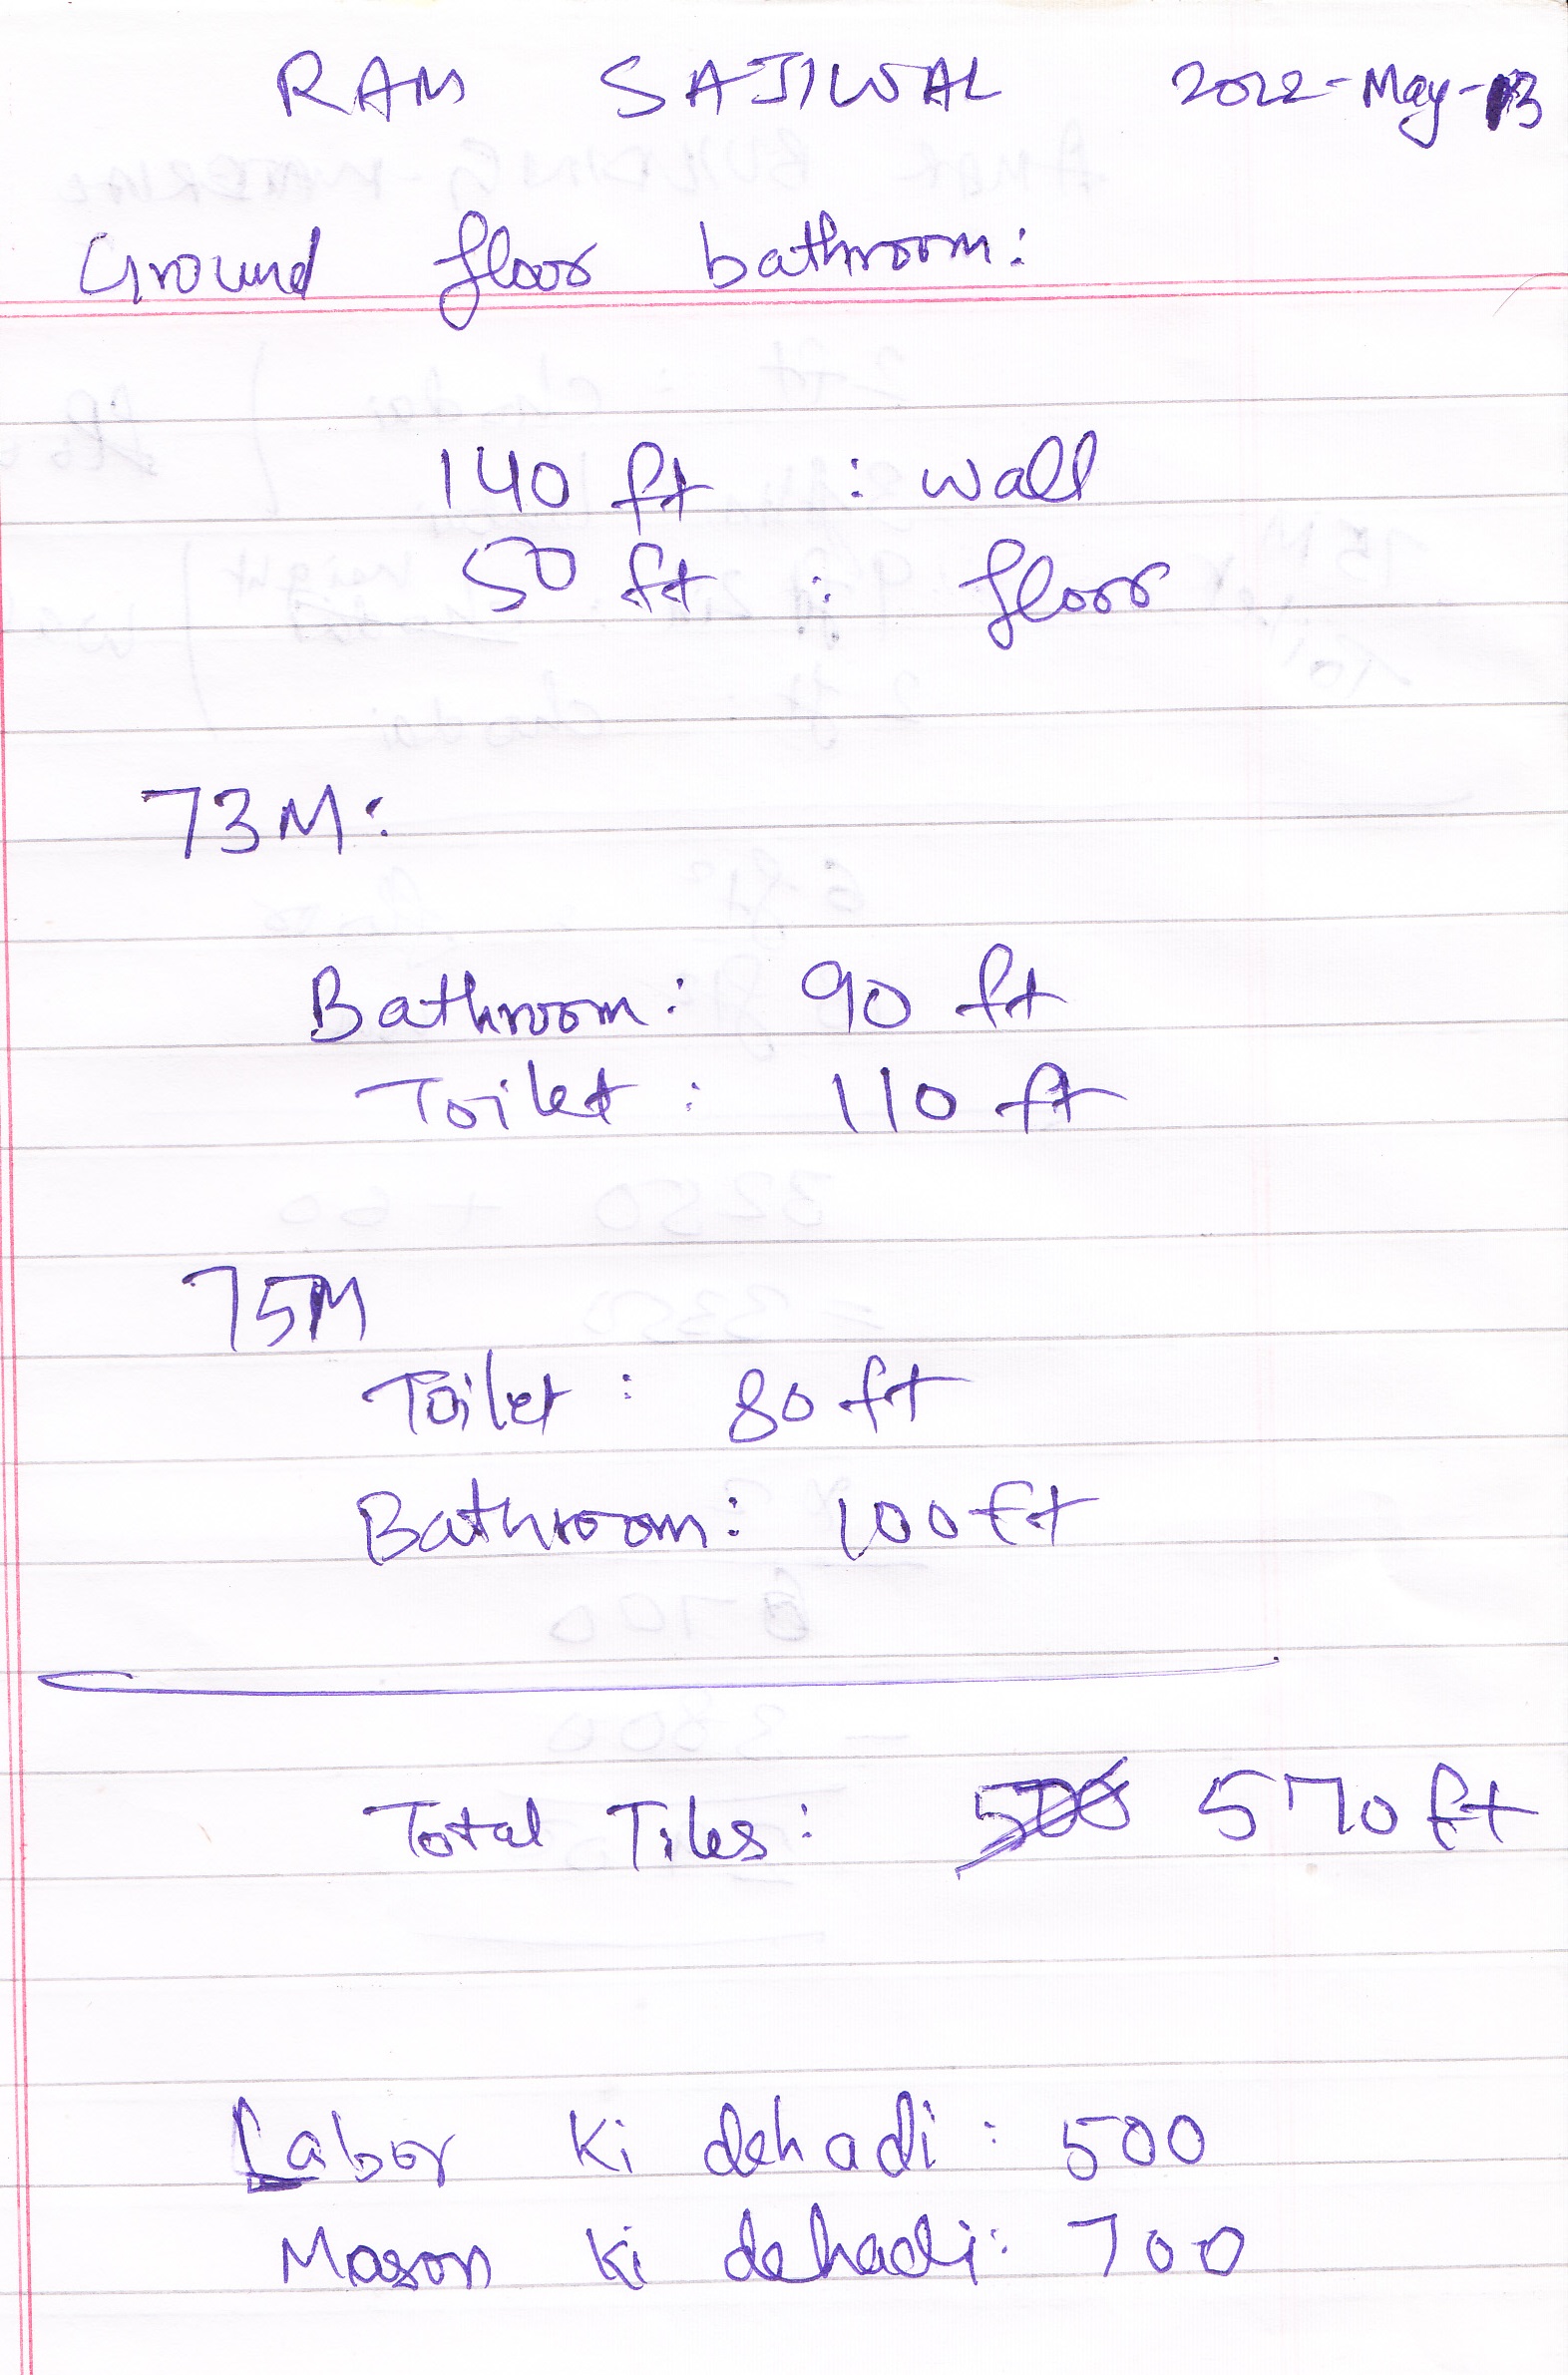 RAM SAJIWAL 2022-May-13
Ground floor bathroom:
140 ft : wall
50 ft : floor
73M:
Bathroom: 90 ft
Toilet : 110 ft
75M
Toilet : 80 ft
Bathroom: 100 ft
Total Tiles: 500 570 ft
Labor ki dehadi: 500
Mason ki dehadi: 700